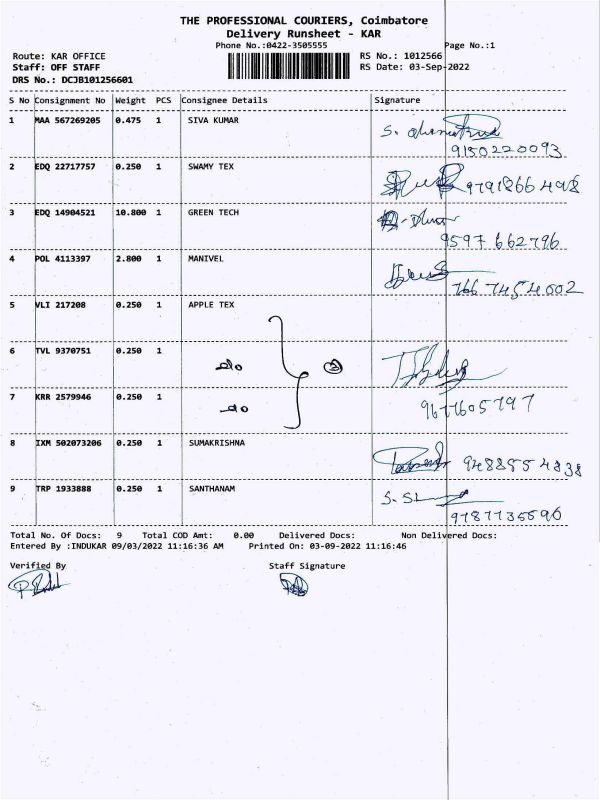 THE PROFESSIONAL COURIERS, Coimbatore
Delivery Runsheet - KAR
Phone No.:0422-3505555 Page No.:1
Route: KAR OFFICE RS No.: 1012566
Staff: OFF STAFF RS Date: 03-Sep-2022
DRS No.: DCJB101256601
S No Consignment No Weight PCS Consignee Details Signature
1 MAA 567269205 0.475 1 SIVA KUMAR
9150220093
2 EDQ 22717757 0.250 1 SWAMY TEX
9791866498
3 EDQ 14904521 10.800 1 GREEN TECH
9597 662796
4 POL 4113397 2.800 1 MANIVEL
766 7454002
5 VLI 217208 0.250 1 APPLE TEX
6 TVL 9370751 0.250 1
7 KRR 2579946 0.250 1
9677605797
8 IXM 502073206 0.250 1 SUMAKRISHNA
9488954838
9 TRP 1933888 0.250 1 SANTHANAM
9787735596
Total No. Of Docs: 9 Total COD Amt: 0.00 Delivered Docs: Non Delivered Docs:
Entered By :INDUKAR 09/03/2022 11:16:36 AM Printed On: 03-09-2022 11:16:46
Verified By Staff Signature